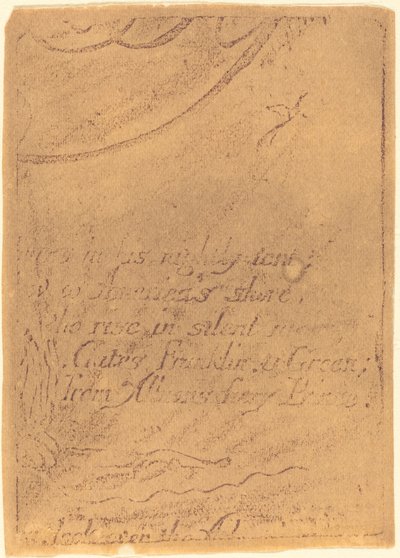 in his nightly tent:
w to Americas shore.
ho rise in silent
Gates Franklin & Green;
from Albions fiery Prince.
look over the